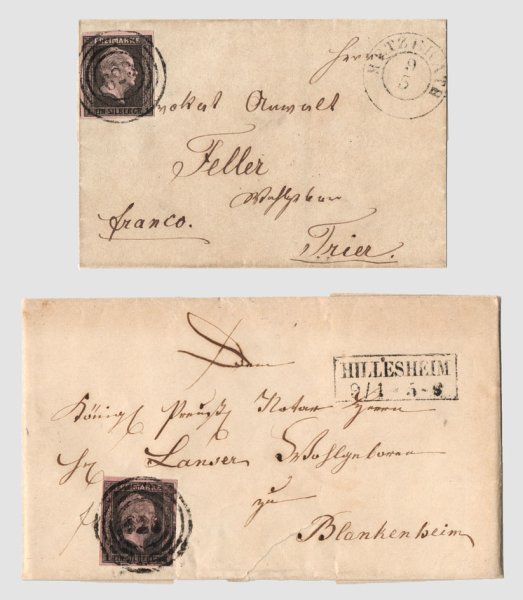 FREIMARKE
EIN SILBERGR.
Herrn
HETZERATH
9
5
Advokat Anwalt
Feller
Wohlgeboren
franco.
Trier.
Dem
HILLESHEIM
9/1 5-8
Königl Preuß Notar Herrn
Lanser Wohlgeboren
zu
FREIMARKE
Blankenheim